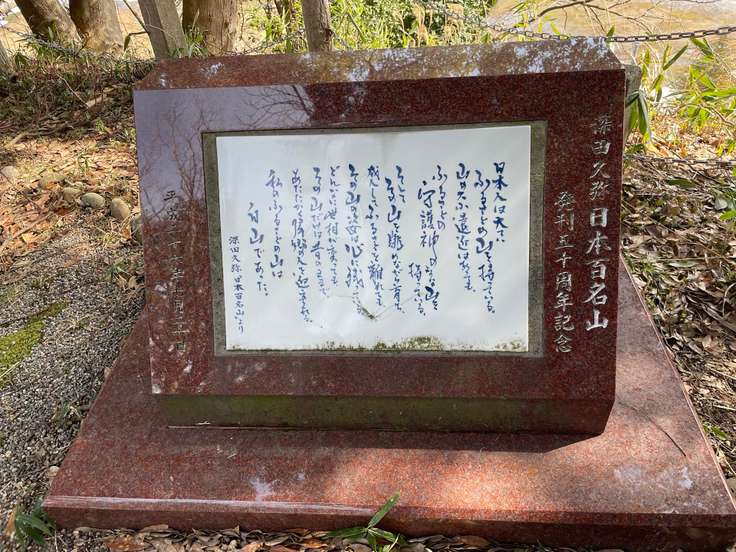 深田久弥 日本百名山
発刊五十周年記念
日本人は大ていふるさとの山を持っている。
山の大小遠近はあっても、
ふるさとの守護神のような山を持っている。
そしてその山を眺めながら育ち、
成人してふるさとを離れても、
その山の姿は心に残っている。
どんなに世相が変っても、
その山だけは昔のままで、
あたたかく故郷の人を迎えてくれる。
私のふるさとの山は
白山であった。
深田久弥 日本百名山より